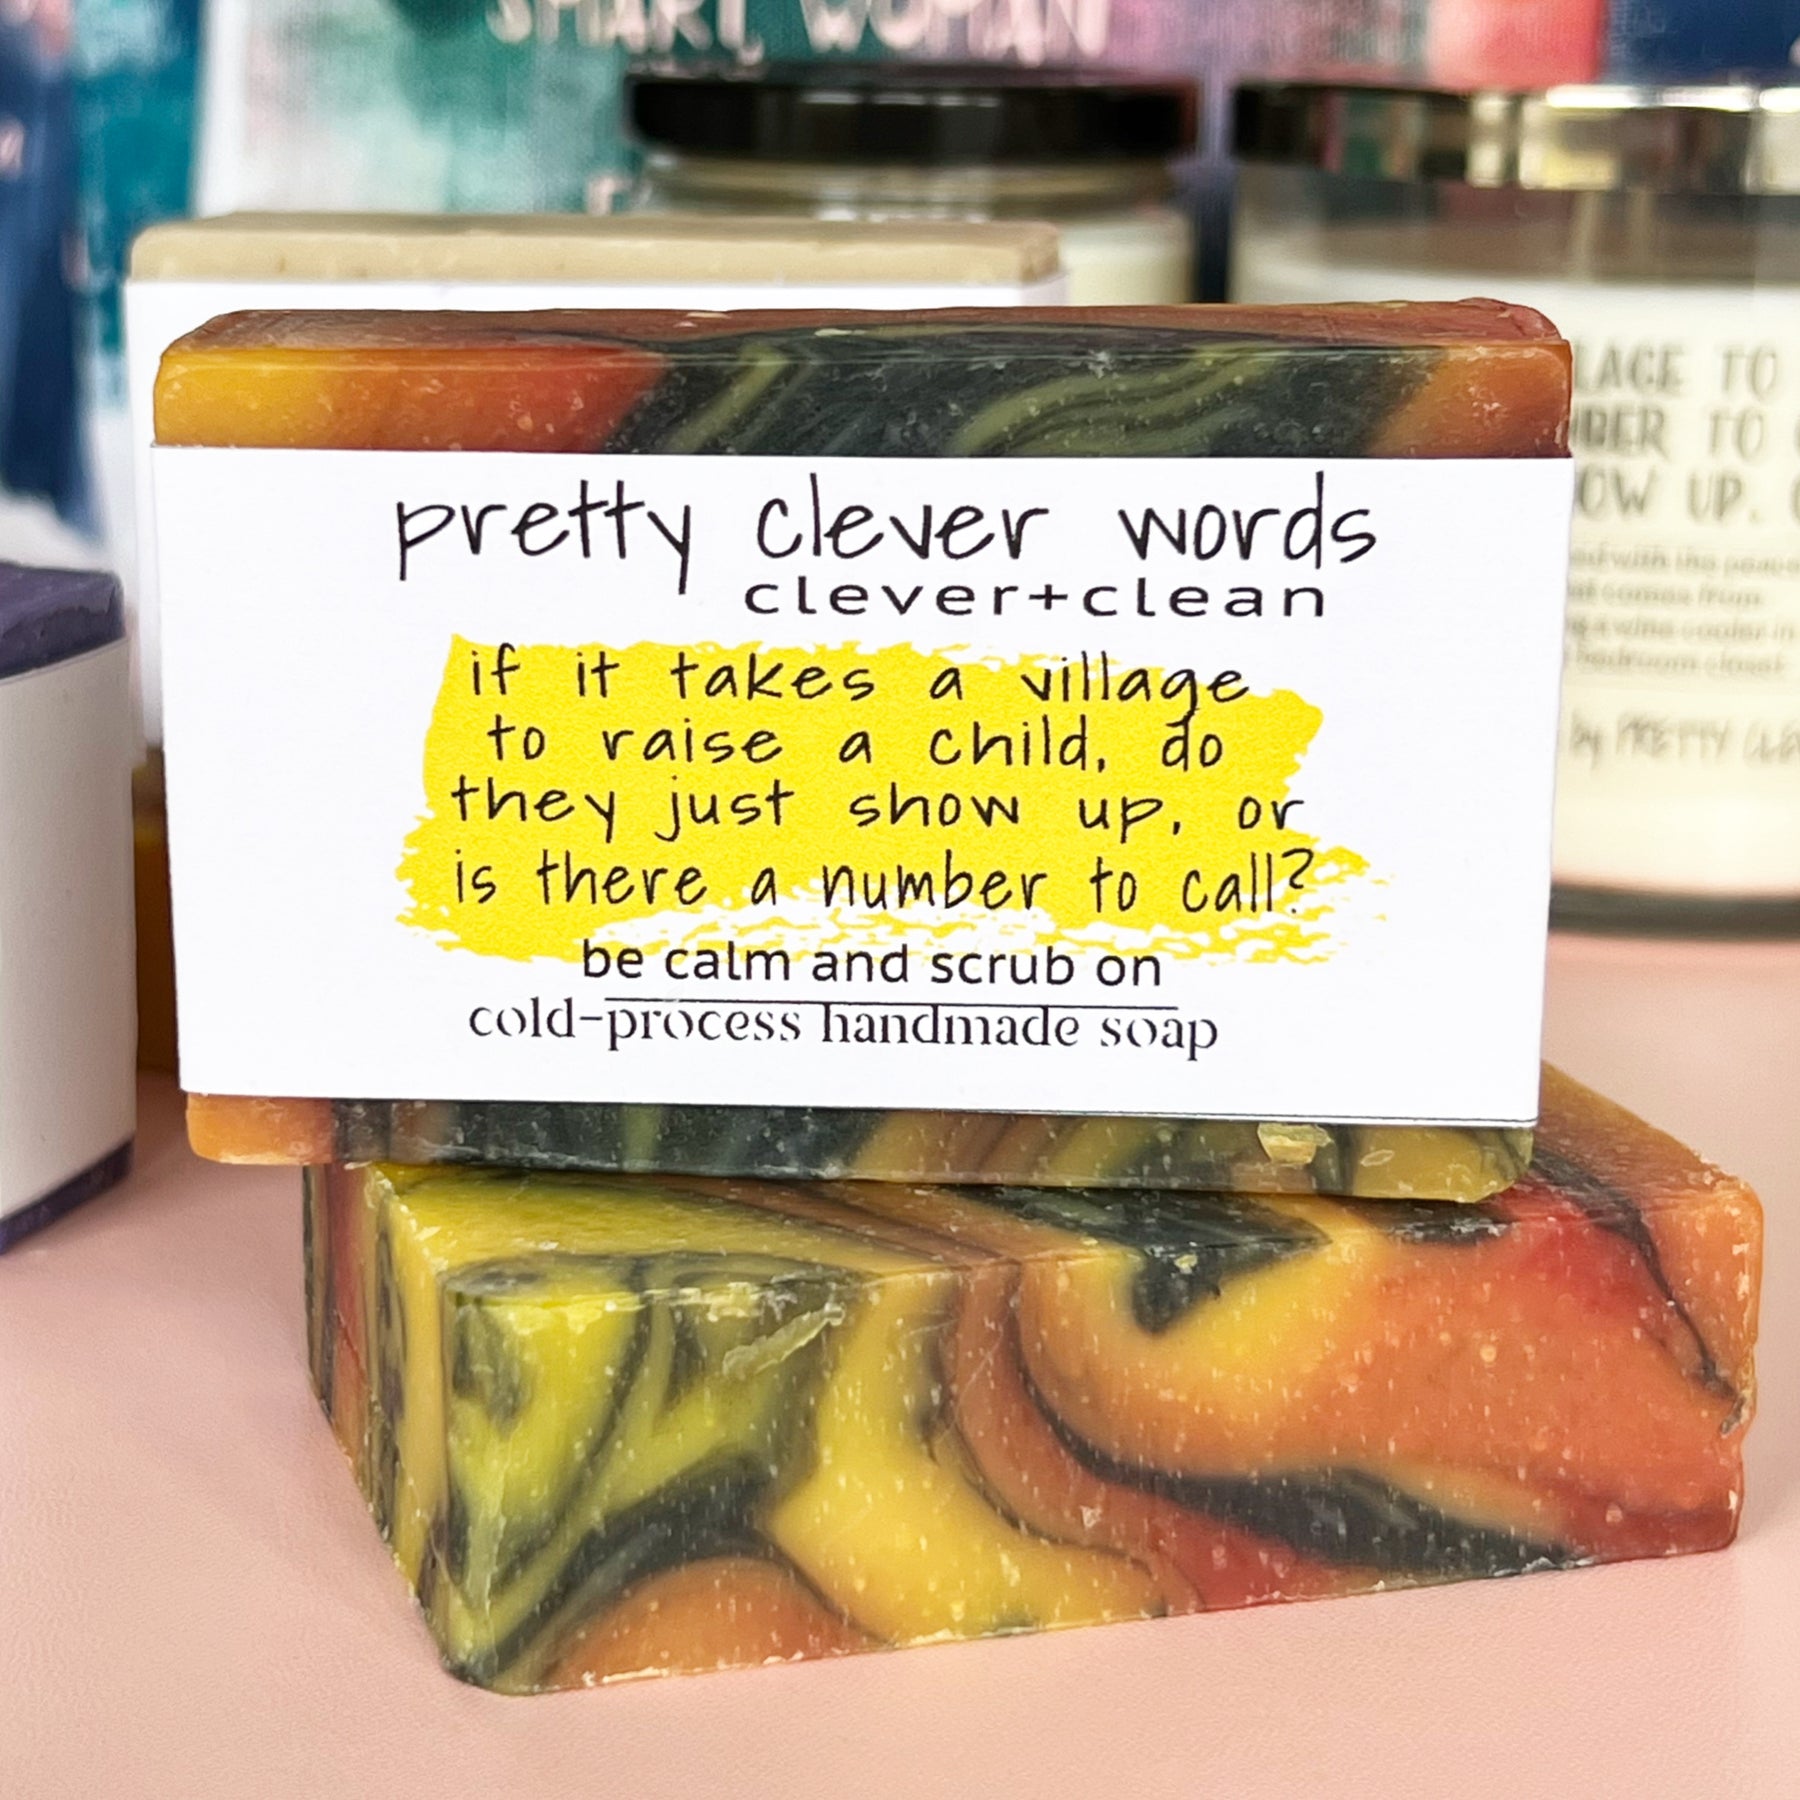 SMART WOMAN
pretty clever words
clever+clean
if it takes a village
to raise a child, do
they just show up, or
is there a number to call?
be calm and scrub on
cold-process handmade soap
TO
TO
UP.
comes from
a wine cooler in
bedroom closet
by PRETTY